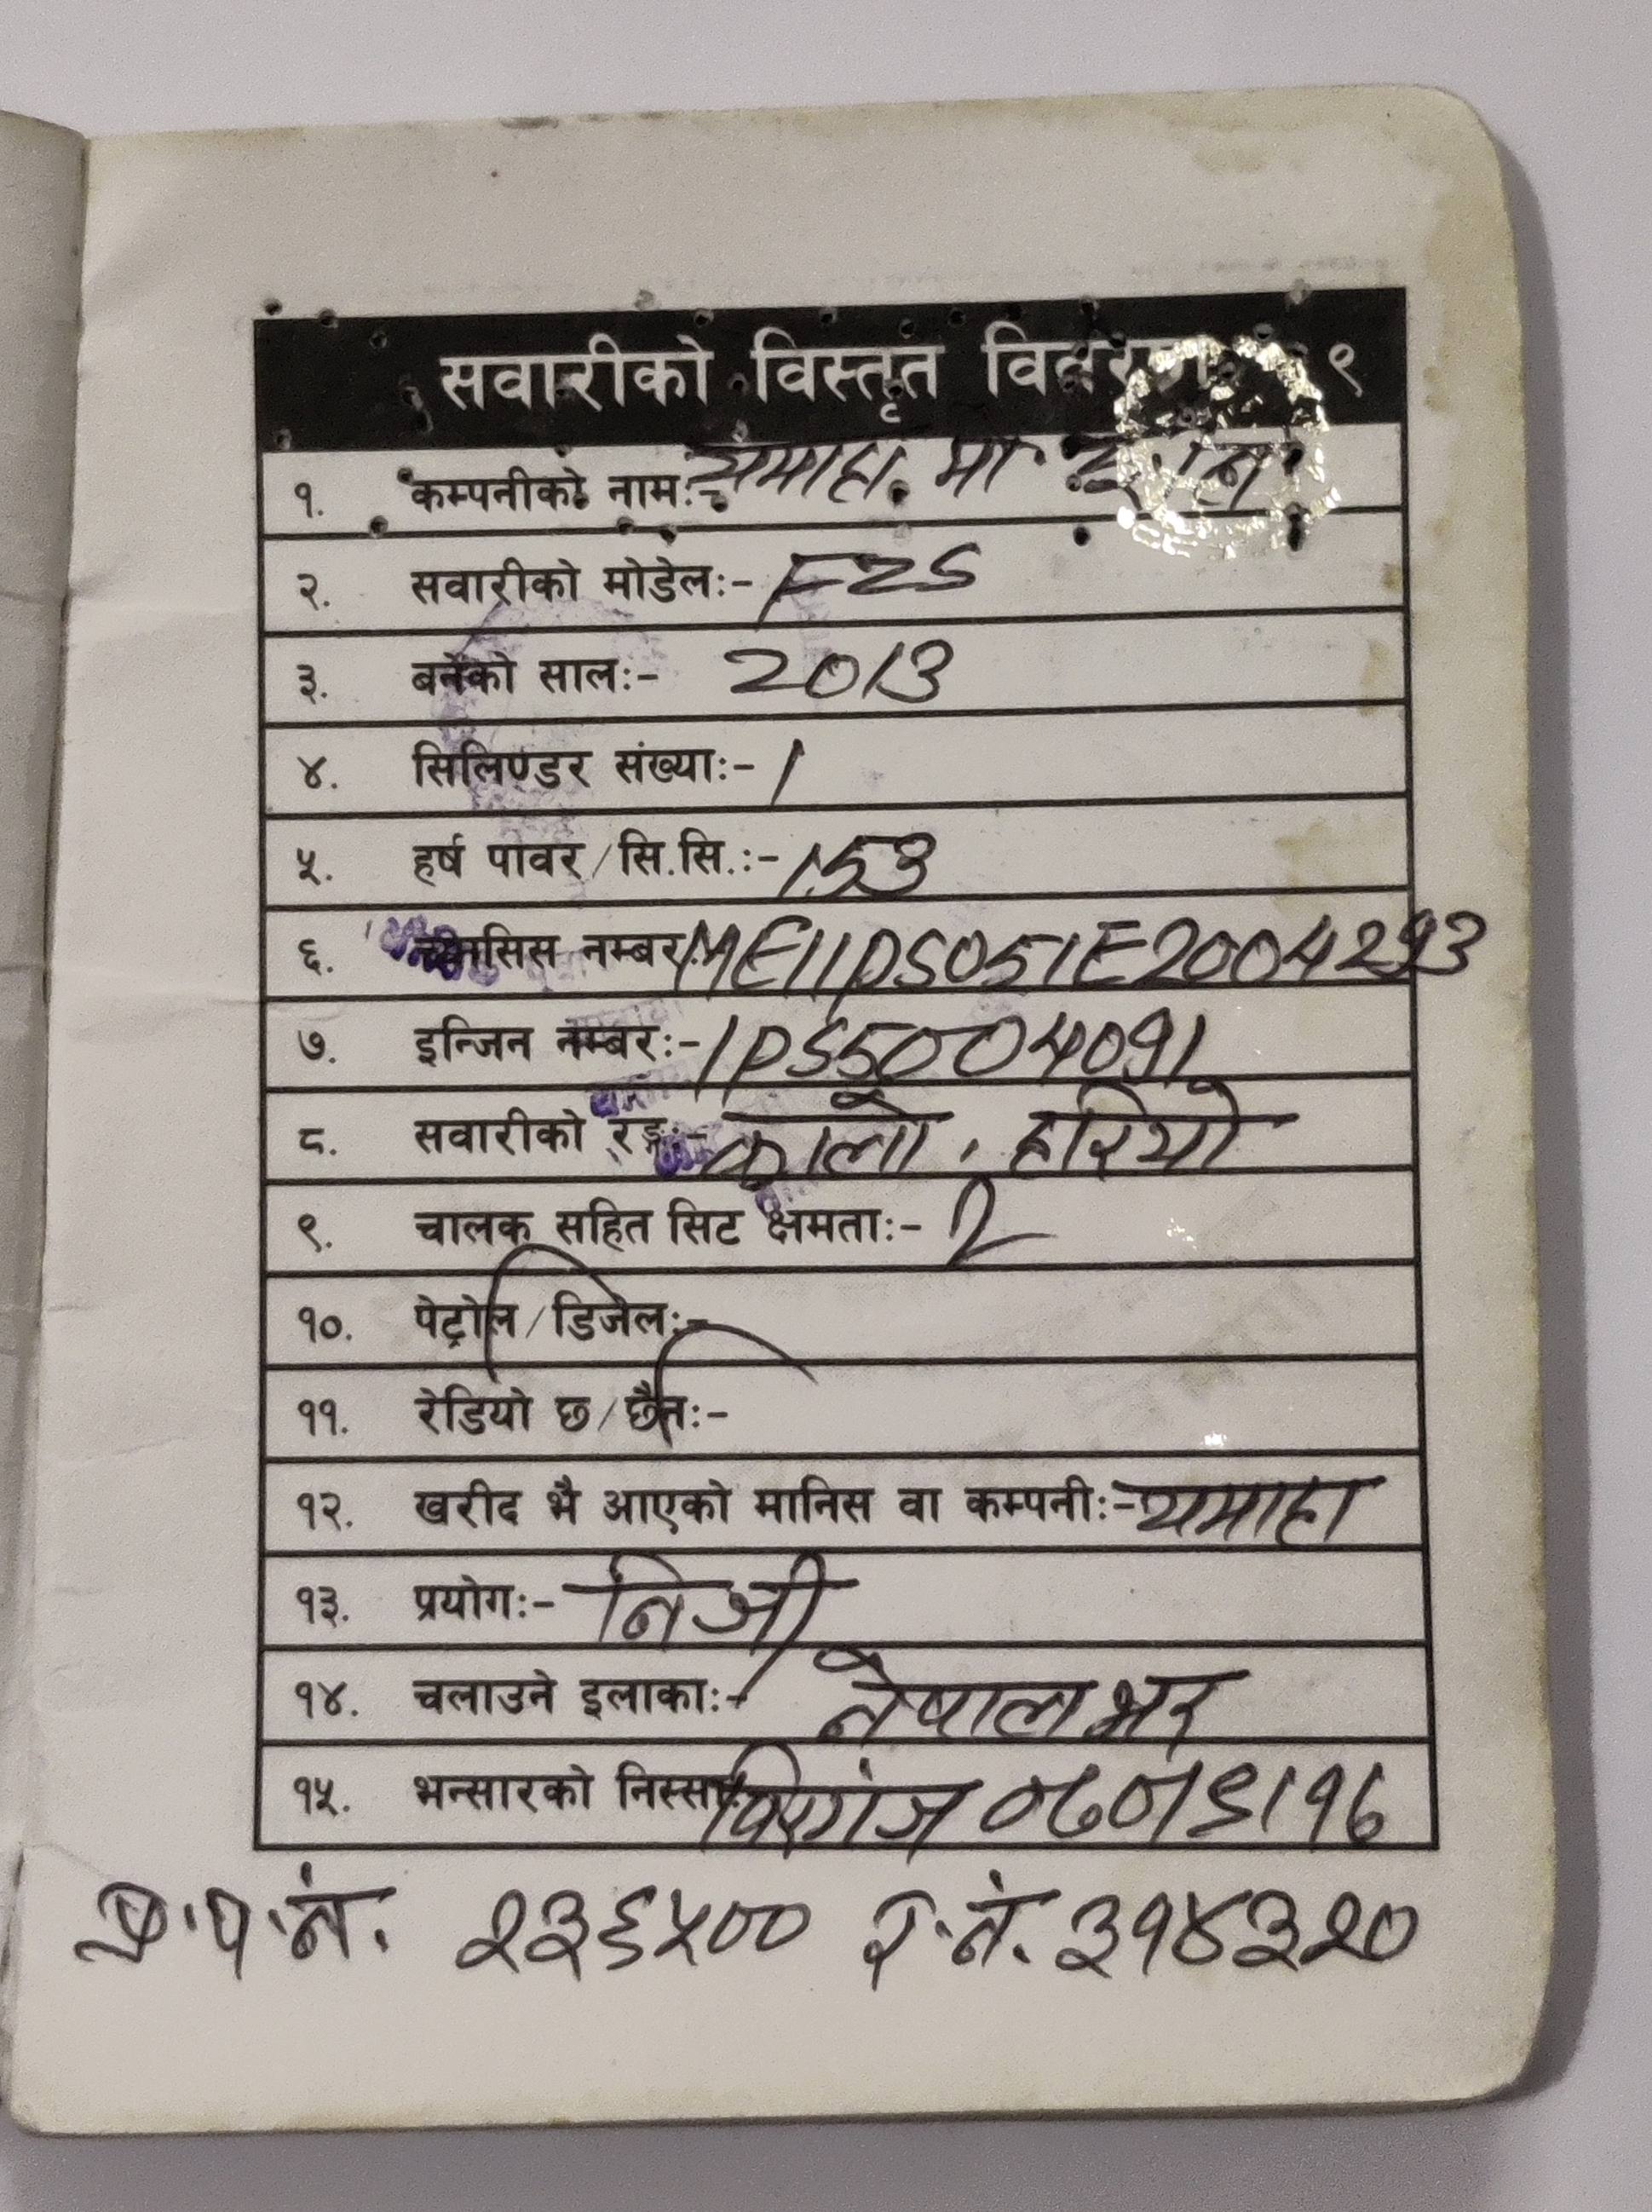 सवारीको विस्तृत विवरण ९
१. कम्पनीको नामः- यमाहा. मो. इ.
२. सवारीको मोडेलः- FZS
३. बनेको सालः- 2013
४. सिलिण्डर संख्याः- 1
५. हर्ष पावर/सि.सि.:- 153
६. च्यासिस नम्बरः ME11DS051E2004293
७. इन्जिन नम्बरः- 1DS5004091
८. सवारीको रङ्गः- कालो, हरियो
९. चालक सहित सिट क्षमताः- 2
१०. पेट्रोल/डिजेलः-
११. रेडियो छ/छैनः-
१२. खरीद भै आएको मानिस वा कम्पनीः- यमाहा
१३. प्रयोगः- निजी
१४. चलाउने इलाकाः- नेपाल भर
१५. भन्सारको निस्साः
प्र.प.नं. २३६५०० र.नं. ३१४३२०